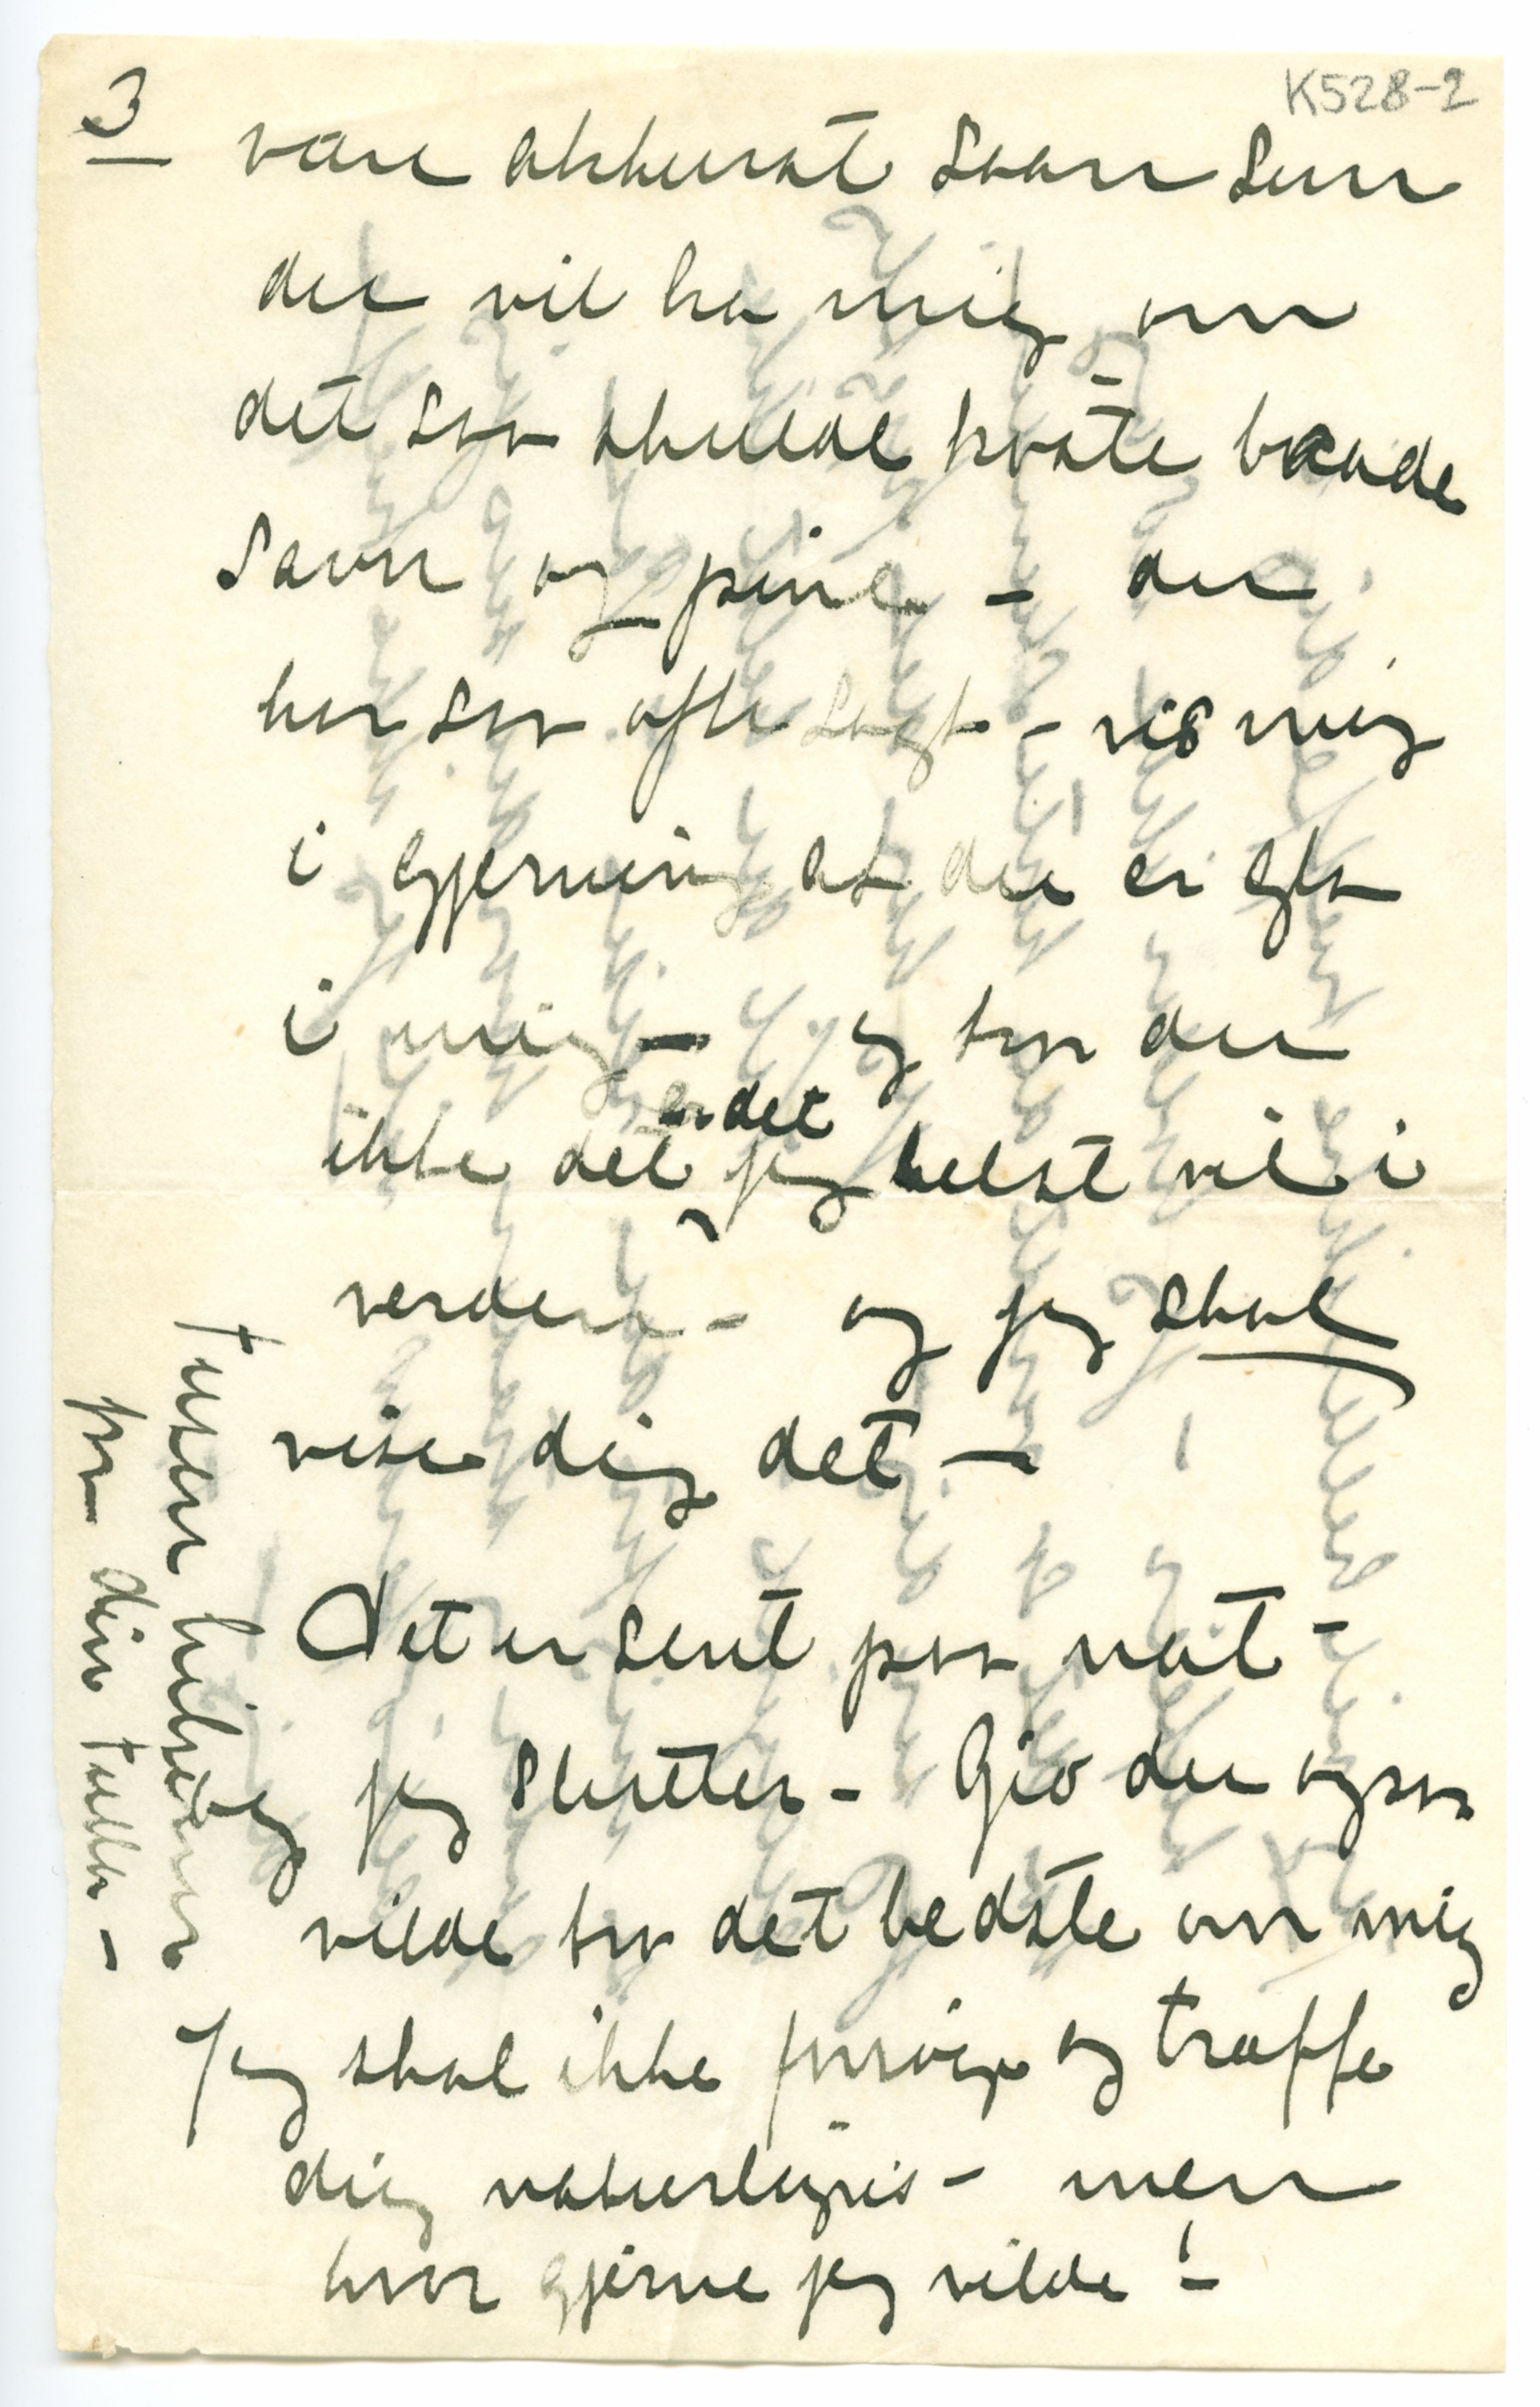 3
K528-2
være akkurat saan som
du vil ha mig om
det saa skulde koste baade
savn og pine - du
har saa ofte sagt - vis mig
i gjerning at du er gla
i mig - og tror du
ikke det er det jeg helst vil i
verden - og jeg skal
vise dig det -
Det er sent paa nat -
jeg slutter - Gid du ogsaa
vilde tro det bedste om mig
Jeg skal ikke forsøge og træffe
dig naturligvis - men
hvor gjerne jeg vilde !
Tusen hilsener
fra din Tulla -